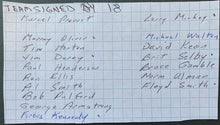 TEAM SIGNED BY 18
Marcel Pronovost
Larry Mickey
Murray Oliver
Michael Walton
Tim Horton
David Keon
Jim Dorey
Brit Selby
Paul Henderson
Bruce Gamble
Ron Ellis
Norm Ullman
Al Smith
Floyd Smith
Bob Pulford
George Armstrong
Forbes Kennedy